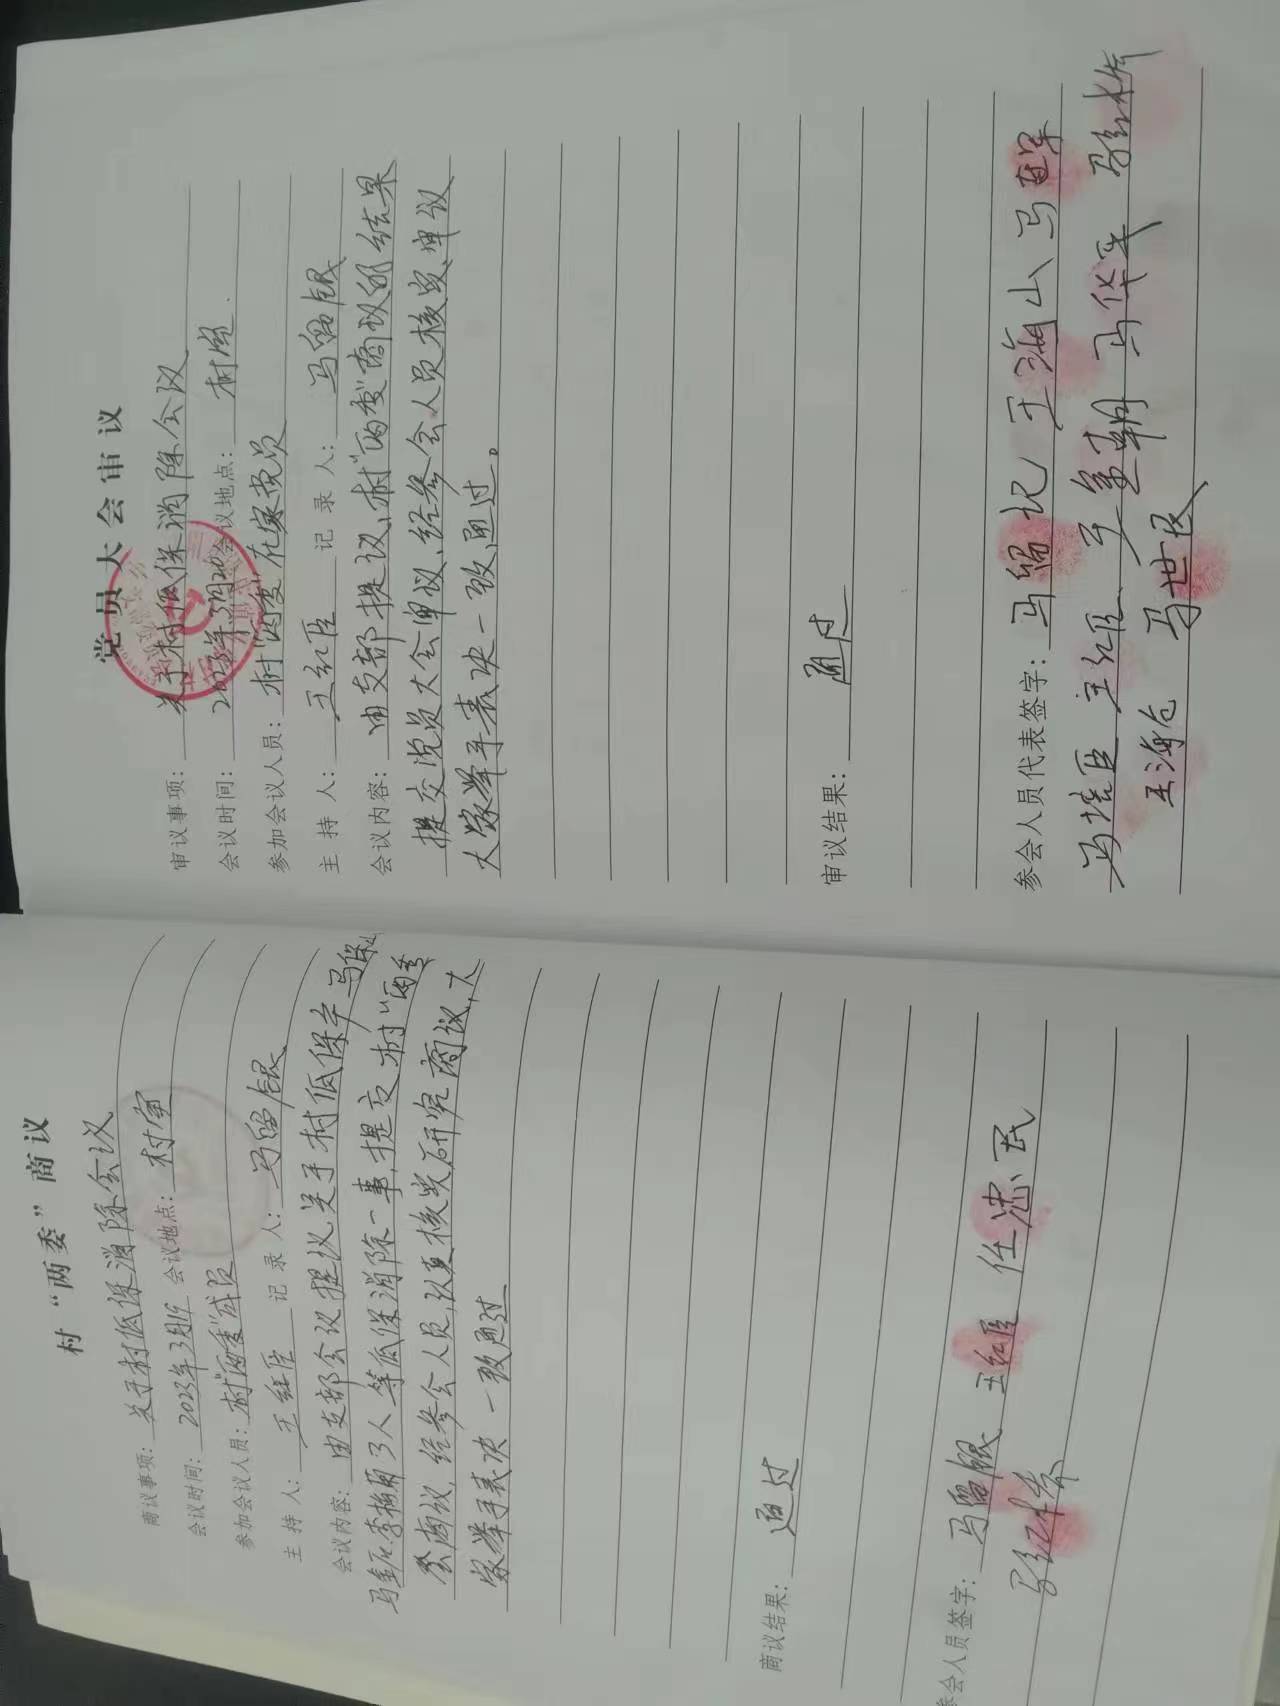 村“两委”商议
商议事项：关于村低保消除会议
会议时间：2023年3月19 会议地点：村室
参加会议人员：村“两委”成员
主 持 人：王红臣 记 录 人：马留银
会议内容：由支部会议提议关于村低保户马保
马 李梅 3人等低保消除一事，提交村“两委
会商议，经参会人员，认真核实研究商议，大
家举手表决一致通过
商议结果：通过
参会人员签字：马留银 王红臣 任忠民
党员大会审议
审议事项：关于村低保消除会议
会议时间：2023年3月20 会议地点：村室.
参加会议人员：村“两委”在家党员
主 持 人：王红臣 记 录 人：马留银
会议内容：由支部提议，村“两委”商议的结果
提交党员大会审议，经参会人员核实、审议
大家举手表决一致通过。
审议结果：通过
参会人员代表签字：马留记 王海山 马
马培臣 王红臣 王金朝 马华平
王海仓 马世民